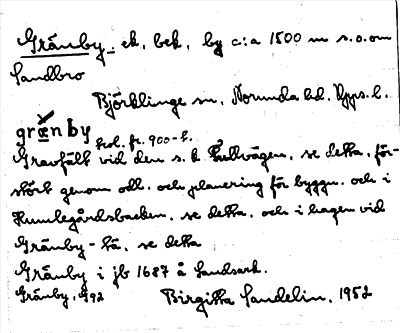 Gränby, ek. bek. by c:a 1500 m s.o. om
Sandbro
Björklinge sn, Norunda hd. Upps. l.
grænby
trol. fr. 900-t.
Gravfält vid den s. k. vägen, se detta, för-
stört genom odl. och planering för byggn. och i
Humlegårdsbacken, se detta, och i hagen vid
Gränby-tä, se detta
Gränby i jb 1687 å Landsark.
Gränby, 1992
Birgitta Sandelin, 1952